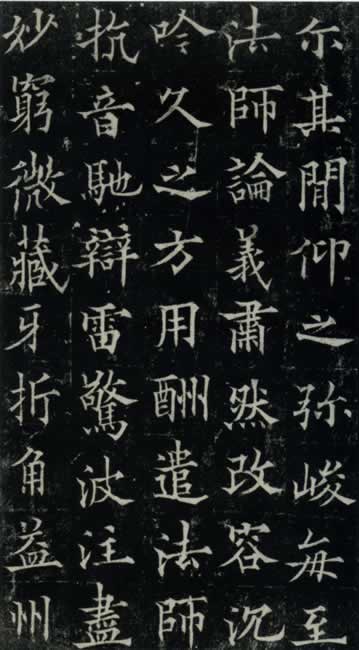 尒其閒仰之弥峻每至
法師論義肅然改容沉
吟久之方用酬遣法師
抗音馳辯雷驚波注盡
妙窮微藏牙折角益州